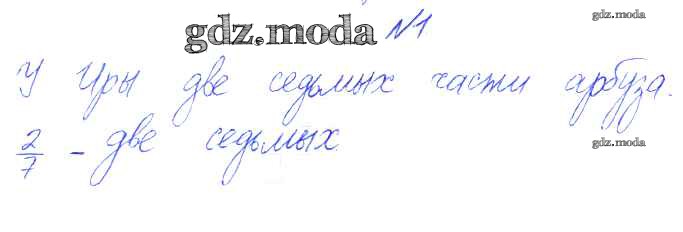 gdz.moda №1
gdz.moda
У Иры две седьмых части арбуза.
2/7 - две седьмых.
gdz.moda